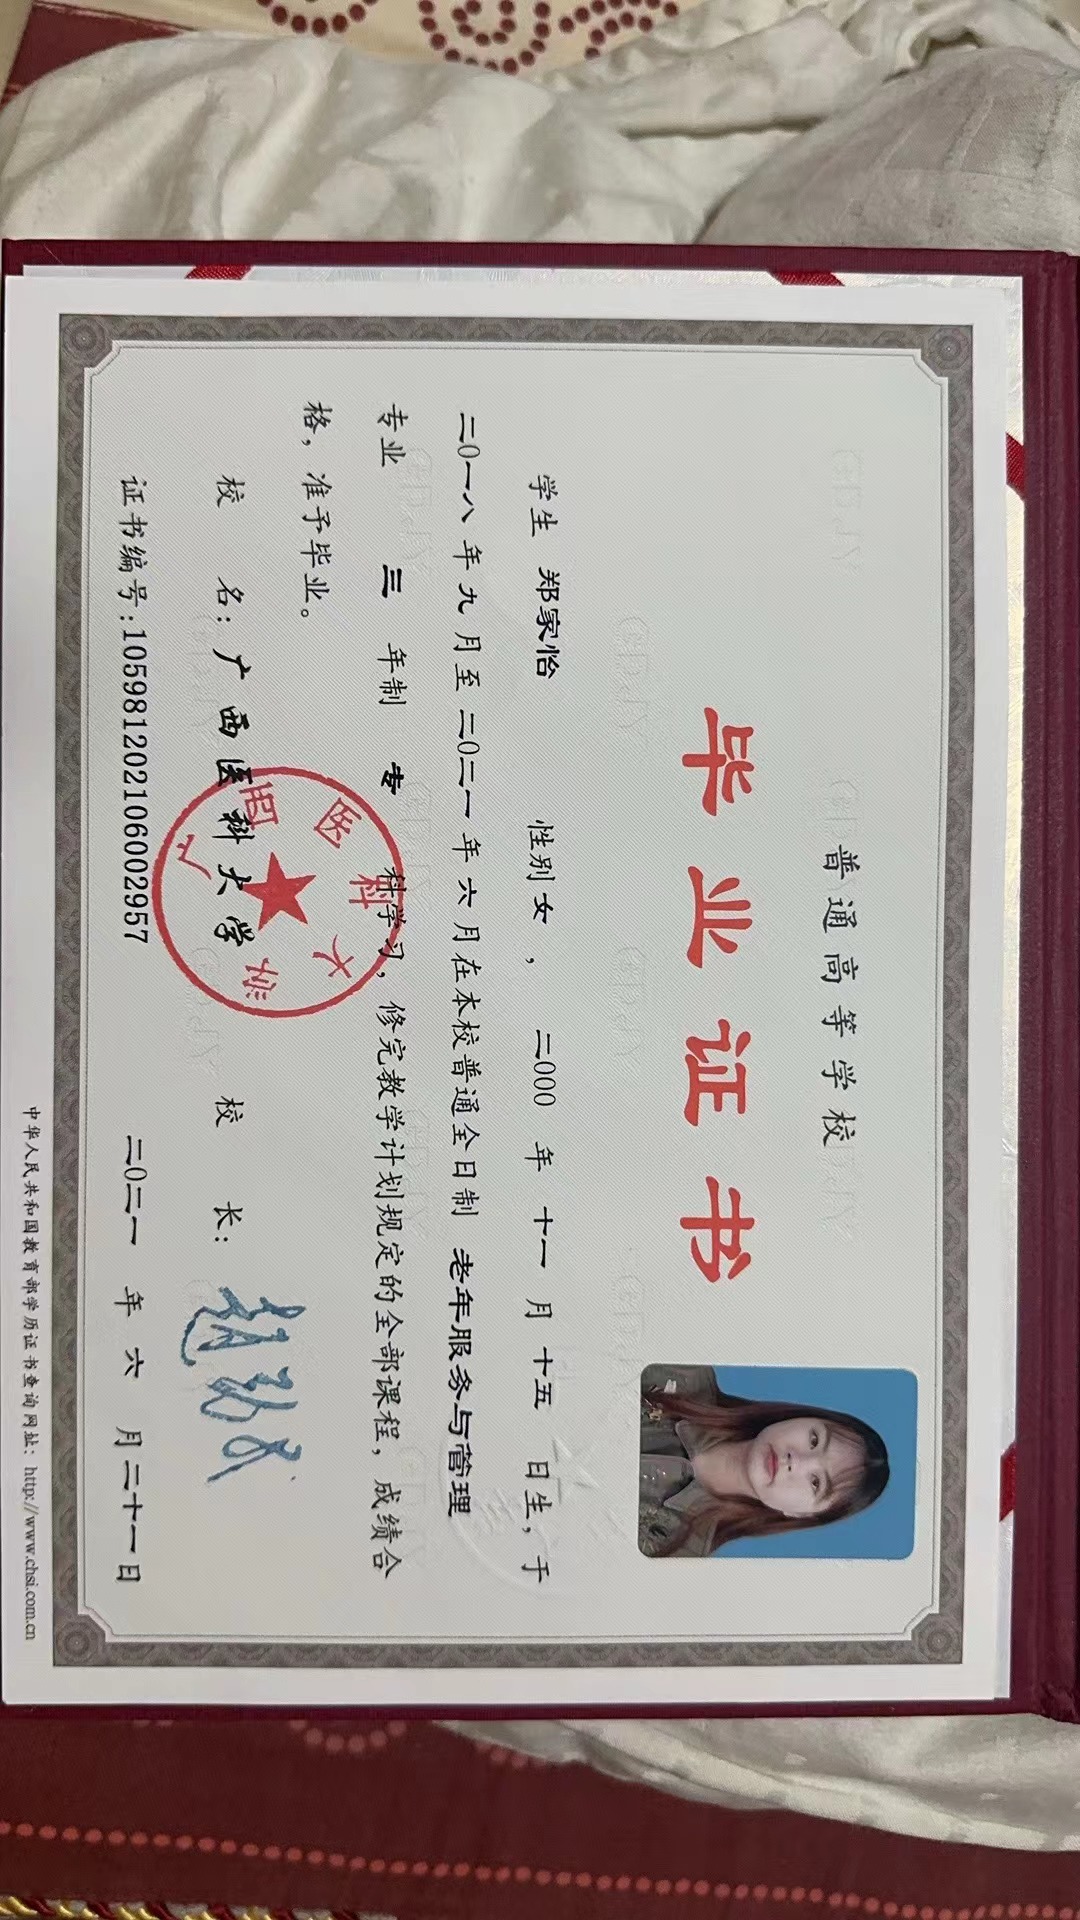 普通高等学校
毕业证书
学生 郑家怡 性别 女 , 二000 年 十一 月 十五 日生，于
二0一八 年 九 月至 二0二一 年 六 月在本校普通全日制 老年服务与管理
专业 三 年制 专 科学习，修完教学计划规定的全部课程，成绩合
格，准予毕业。
校 名：广西医科大学 校 长：
证书编号：105981202106002957 二0二一 年 六 月二十一日
中华人民共和国教育部学历证书查询网址：http://www.chsi.com.cn
广西医科大学